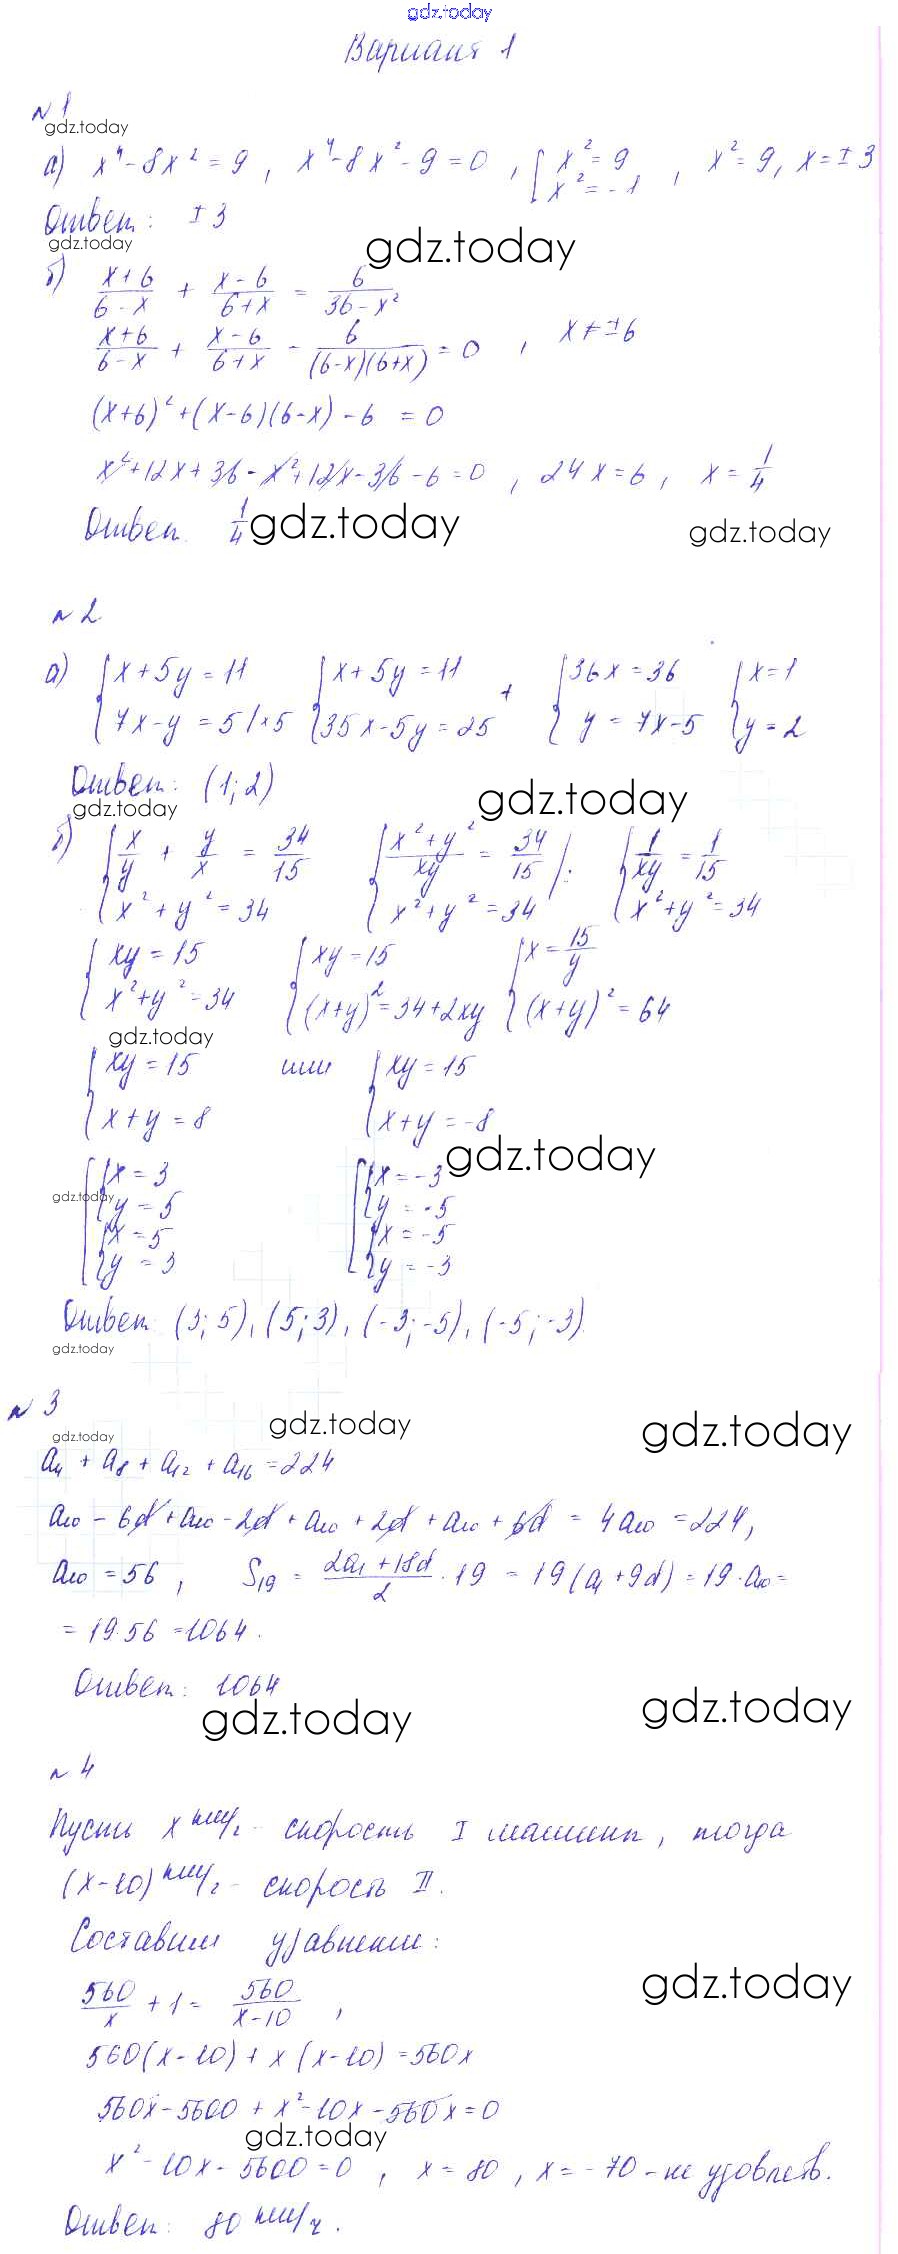 gdz.today
Вариант 1
№1
gdz.today
а) x⁴-8x²=9, x⁴-8x²-9=0, [x²=9 x²=-1, x²=9, x=±3
Ответ: ±3
gdz.today
gdz.today
б) (x+6)/(6-x) + (x-6)/(6+x) = 6/(36-x²)
(x+6)/(6-x) + (x-6)/(6+x) - 6/((6-x)(6+x)) = 0, x≠±6
(x+6)²+(x-6)(6-x)-6=0
x²+12x+36-x²+12x-36-6=0, 24x=6, x=1/4
Ответ 1/4
gdz.today
gdz.today
№2
а) {x+5y=11 {x+5y=11 + {36x=36 {x=1
7x-y=5|×5 35x-5y=25 y=7x-5 y=2
Ответ: (1;2)
gdz.today
gdz.today
б) {x/y + y/x = 34/15 {(x²+y²)/xy = 34/15 ): {1/xy = 1/15
x²+y²=34 x²+y²=34 x²+y²=34
{xy=15 {xy=15 {x=15/y
x²+y²=34 (x+y)²=34+2xy (x+y)²=64
gdz.today
{xy=15 или {xy=15
x+y=8 x+y=-8
gdz.today
[{x=3 [{x=-3
gdz.today
y=5 y=-5
{x=5 {x=-5
y=3 y=-3
Ответ: (3;5), (5;3), (-3;-5), (-5;-3)
gdz.today
№3
gdz.today
gdz.today
gdz.today
a₄+a₈+a₁₂+a₁₆=224
a₁₀-6d+a₁₀-2d+a₁₀+2d+a₁₀+6d=4a₁₀=224,
a₁₀=56, S₁₉=(2a₁+18d)/2·19=19(a₁+9d)=19·a₁₀=
=19·56=1064.
Ответ: 1064
gdz.today
gdz.today
№4
Пусть x км/ч - скорость I машины, тогда
(x-10) км/ч - скорость II.
Составим уравнение:
560/x+1=560/(x-10),
gdz.today
560(x-10)+x(x-10)=560x
560x-5600+x²-10x-560x=0
gdz.today
x²-10x-5600=0, x=80, x=-70-не удовлетв.
Ответ: 80 км/ч.